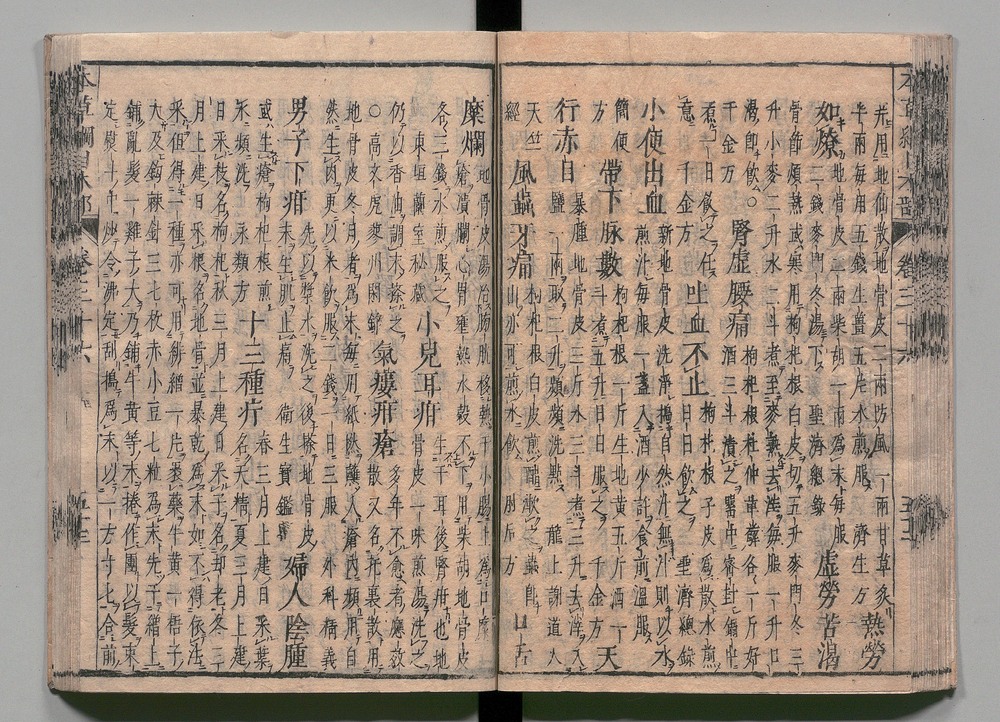 本草綱目木部 卷三十六 五十三
并用地仙散地骨皮二兩防風一兩甘草炙
半兩每用五錢生薑五片水煎服 濟生方
熱勞
如燎
地骨皮二兩柴胡一兩為末每服
二錢麥門冬湯下 聖濟總錄
虛勞苦渴
骨節煩熱或寒用枸杞根白皮切五升麥門冬三
升小麥二升水二斗煮至麥熟去渣每服一升口
渴即飲 ○
千金方
腎虛腰痛
枸杞根杜仲萆薢各一斤好
酒三斗漬之罌中密封鍋中
煮一日飲之任
意 千金方
吐血不止
枸杞根子皮為散水煎
日日飲之 聖濟總錄
小便出血
新地骨皮洗淨搗自然汁無汁則以水
煎汁每服一盞入酒少許食前溫服
簡便
方
帶下脉數
枸杞根一斤生地黃五斤酒一
斗煮五升日日服之 千金方
天
行赤目
暴腫地骨皮三斤水三斗煮三升去滓入
鹽一兩取二升頻頻洗點 龍上謝道人
天竺
經
風蟲牙痛
枸杞根白皮煎醋漱之蟲即出
亦可煎水飲 肘後方
口舌
糜爛
地骨皮湯治膀胱移熱于小腸上為口糜
生瘡潰爛心胃壅熱水穀不下用柴胡地骨皮
各三錢水煎服之
東垣蘭室秘藏
小兒耳疳
生于耳後腎疳也地
骨皮一味煎湯洗之
仍以香油調末搽之
○高文虎蓼州閒錄
氣瘻疳瘡
多年不愈者應效
散又名托裏散用
地骨皮冬月者為末每用紙撚蘸入瘡內頻用自
然生肉更以米飲服二錢一日三服 外科精義
男子下疳
先以漿水洗之後搽地骨皮
末生肌止痛 衛生寶鑑
婦人陰腫
或生瘡枸杞根煎
水頻洗 永類方
十三種疔
春三月上建日采葉
名天精夏三月上建
日采枝名枸杞秋三月上建日采子名却老冬三
月上建日采根名地骨並暴乾為末如不得依法
采但得一種亦可用緋繒一片裹藥牛黃一梧子
大及鉤棘針三七枚赤小豆七粒為末先于繒上
鋪亂髮一雞子大乃鋪牛黃等末捲作團以髮束
定熨斗中炒令沸沸定刮搗為末以一方寸匕合前
本草綱目木部 卷三十六